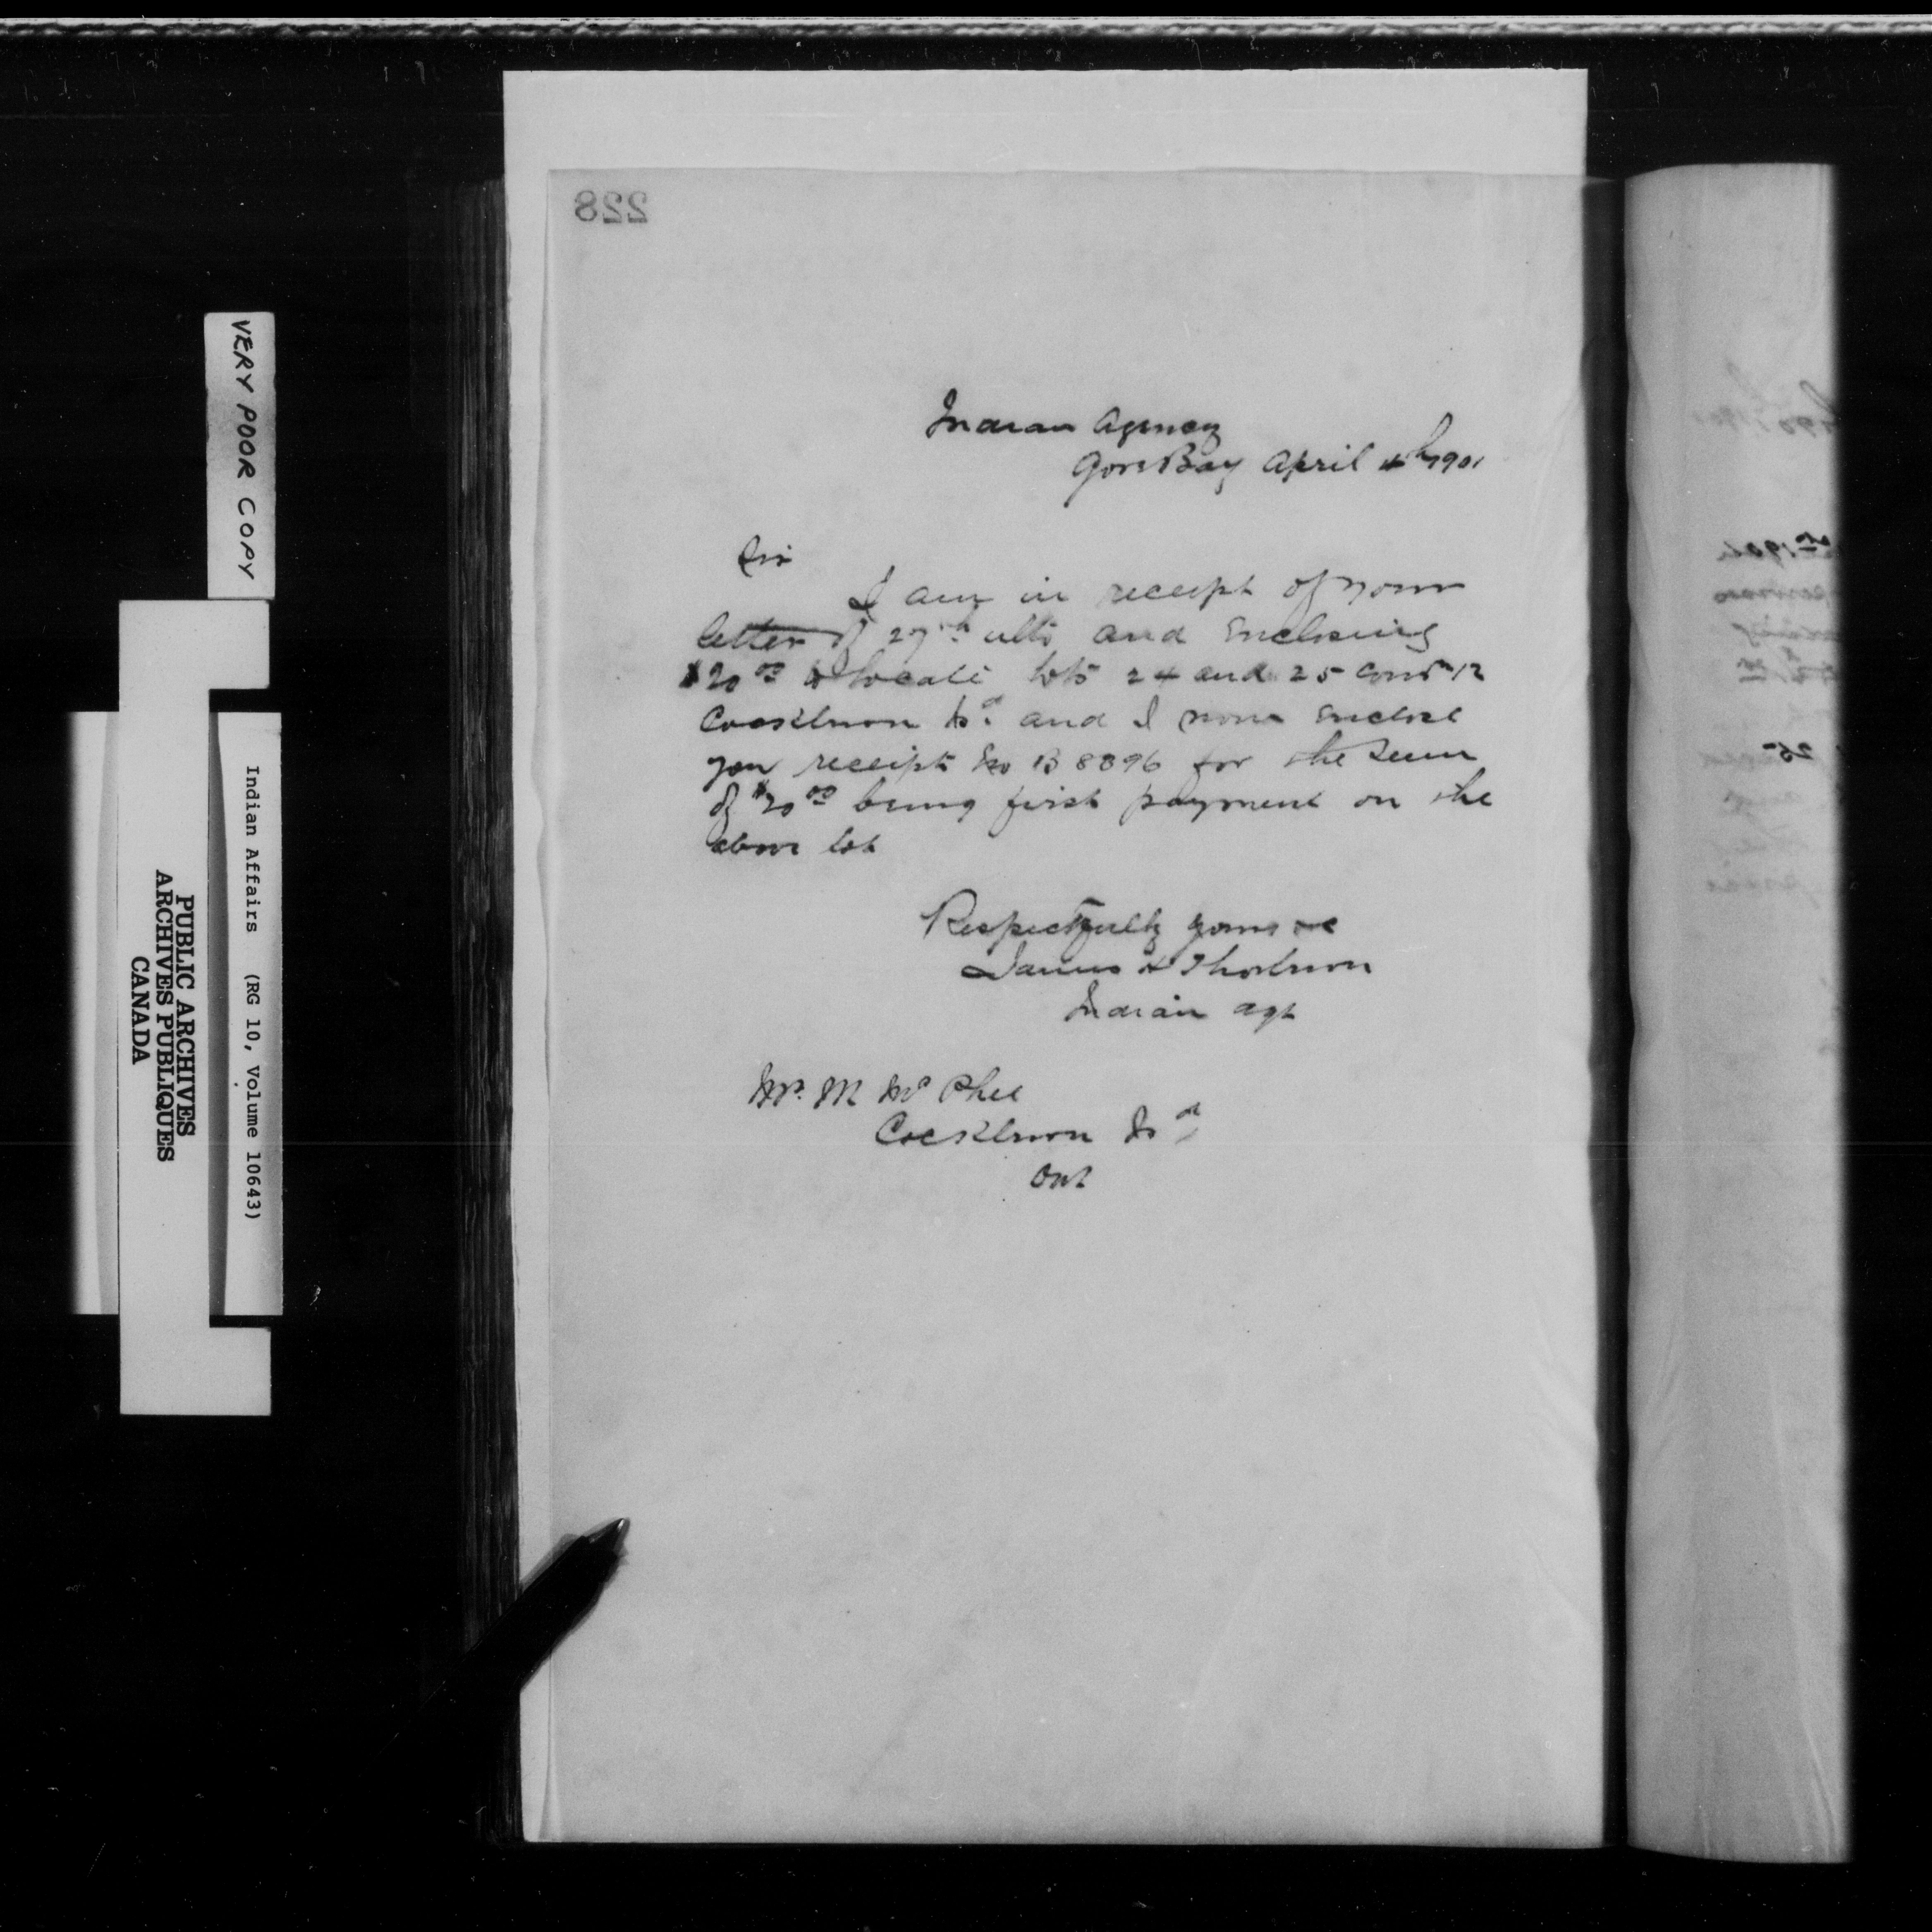 228
Indian Agency
Gore Bay April 4th 1901
Sir
I am in receipt of your
letter of 27th ulto and enclosing
$20.00 to locate lots 24 and 25 Con 12
Cockburn Isd. and I now enclose
you receipt No B 8896 for the sum
of $20.00 being first payment on the
above lot
Respectfully yours
James H Thorburn
Indian agt
Mr. M Mc Phee
Cockburn Isd
Ont
VERY POOR COPY
Indian Affairs (RG 10, Volume 10643)
PUBLIC ARCHIVES
ARCHIVES PUBLIQUES
CANADA